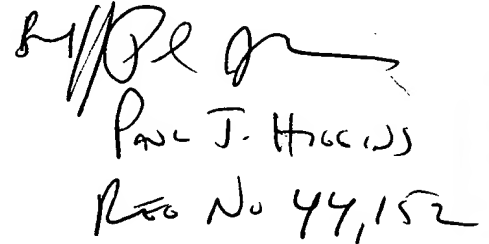 Paul J. Higgins
Reg No 44,152